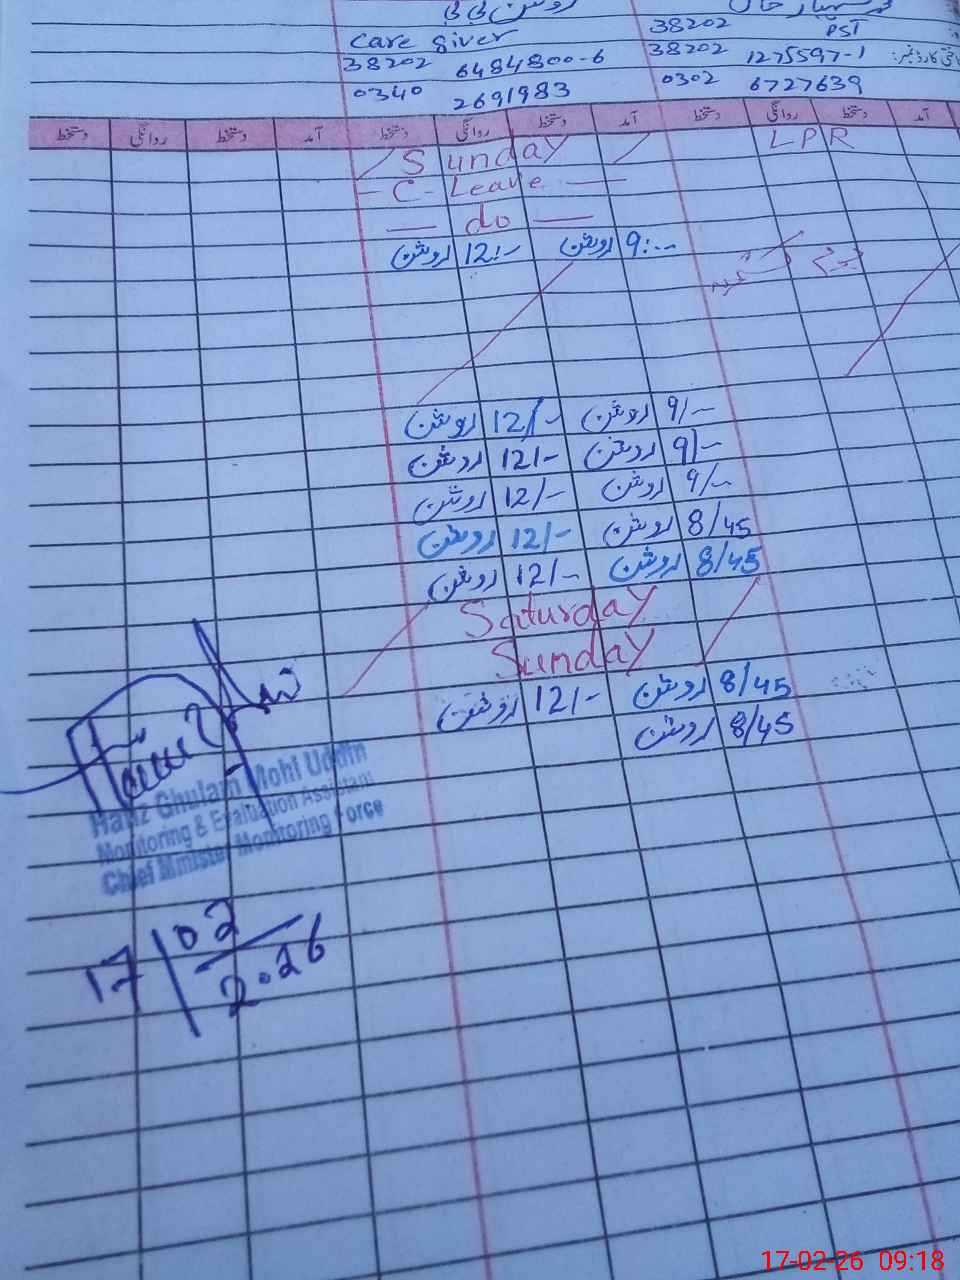 روشن بی بی
care giver
38202 6484800-6
0340 2691983
38202
PST
38202 1275597-1
0302 6727639
آمد دستخط روانگی دستخط آمد دستخط روانگی دستخط آمد دستخط روانگی دستخط
L P R
Sunday
C - Leave
do
9:-- روشن 12:- روشن
9/-- روشن 12/- روشن
9/-- روشن 12/- روشن
9/-- روشن 12/- روشن
8/45 روشن 12/- روشن
8/45 روشن 12/- روشن
Saturday
Sunday
8/45 روشن 12/- روشن
8/45 روشن
Hafiz Ghulam Mohi Uddin
Monitoring & Evaluation Assistant
Chief Minister Monitoring Force
17/02/2026
17-02-26 09:18